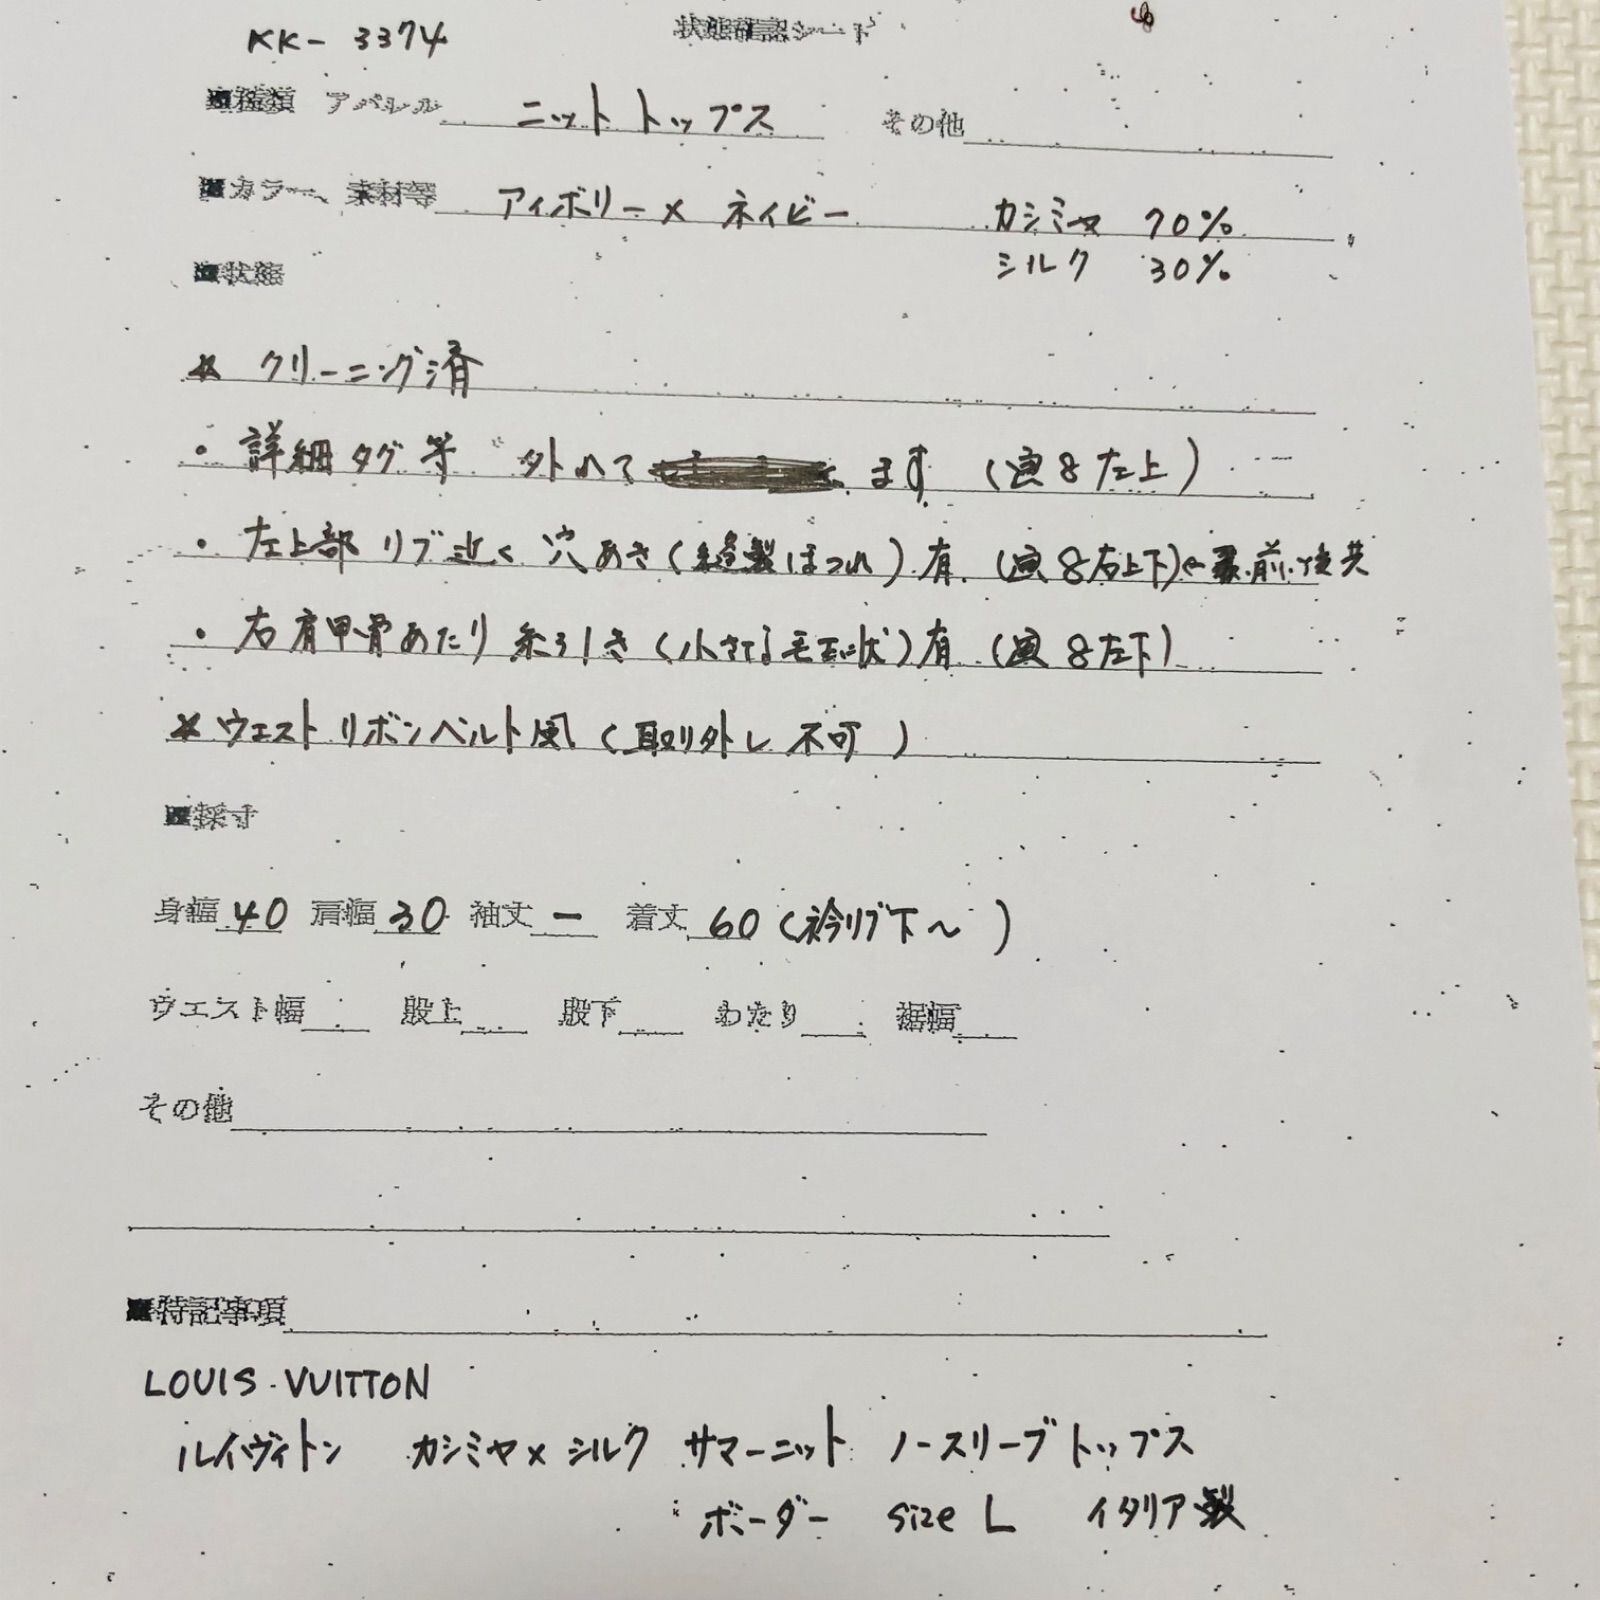 KK- 3374 状態確認シート
■種類 アパレル ニット トップス その他
■カラー、素材等 アイボリー × ネイビー カシミヤ 70%
シルク 30%
■状態
* クリーニング済
・詳細タグ等 外れて ます (画8左上)
・左上部 リブ近く 穴あき(縫製ほつれ)有 (画8右上下)← 前・後共
・右肩甲骨あたり 糸引き(小さな毛玉状)有 (画8左下)
* ウエスト リボンベルト風 (取り外し 不可)
■採寸
身幅 40 肩幅 30 袖丈 ー 着丈 60 (衿リブ下〜 )
ウエスト幅 股上 股下 わたり 裾幅
その他
■特記事項
LOUIS VUITTON
ルイヴィトン カシミヤ×シルク サマーニット ノースリーブトップス
ボーダー size L イタリア製